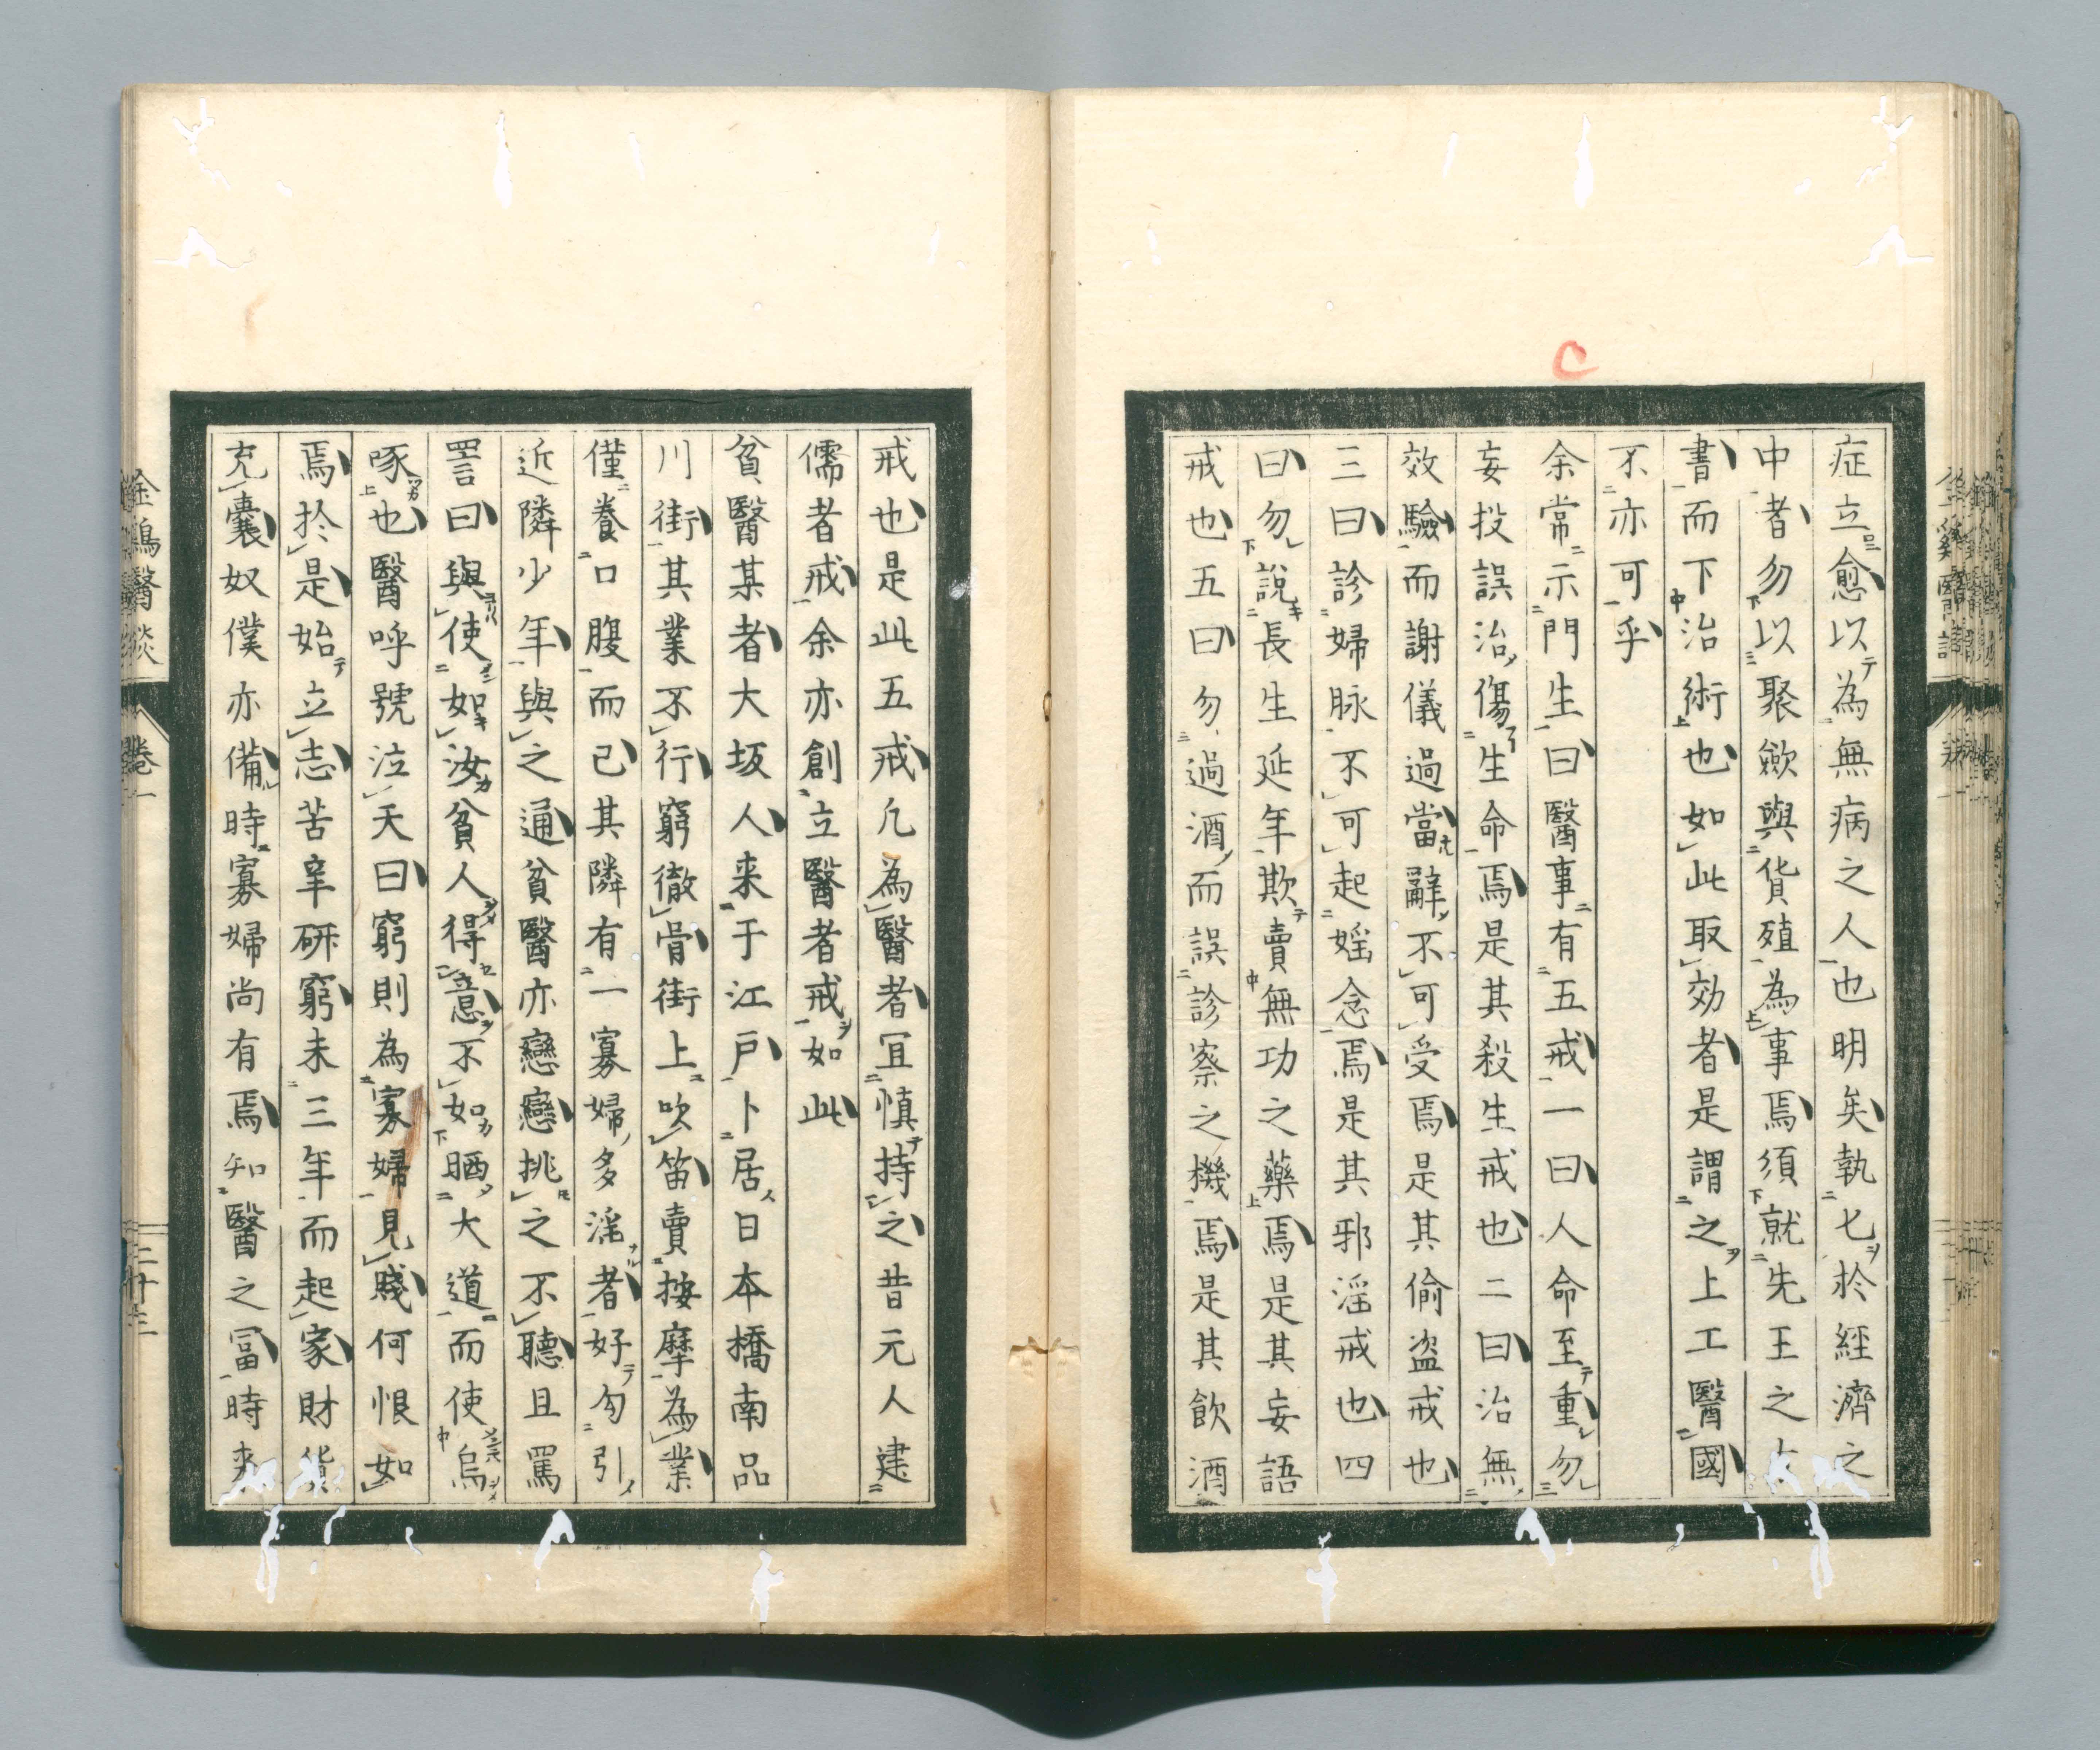 症立愈以為無病之人也明矣執七於經濟之
中者勿以聚斂與貨殖為事焉須就先王之
書而下治術也如此取効者是謂之上工醫國
不亦可乎
余常示門生曰醫事有五戒一曰人命至重勿
妄投誤治傷生命焉是其殺生戒也二曰治無
效驗而謝儀過當辭不可受焉是其偷盜戒也
三曰診婦脉不可起婬念焉是其邪淫戒也四
曰勿說長生延年欺賣無功之藥焉是其妄語
戒也五曰勿過酒而誤診察之機焉是其飲酒
戒也是此五戒凡為醫者宜慎持之昔元人建
儒者戒余亦創立醫者戒如此
貧醫某者大坂人来于江戶卜居日本橋南品
川街其業不行窮徹骨街上吹笛賣按摩為業
僅養口腹而已其隣有一寡婦多淫者好勾引
近隣少年與之通貧醫亦戀戀挑之不聽且罵
詈曰與使如汝貧人得意不如晒大道而使烏
啄也醫呼號泣天曰窮則為寡婦見賤何恨如
焉於是始立志苦辛研窮未三年而起家財貨
充囊奴僕亦備時寡婦尚有焉知醫之冨時来
金鷄醫談
卷一
二十三